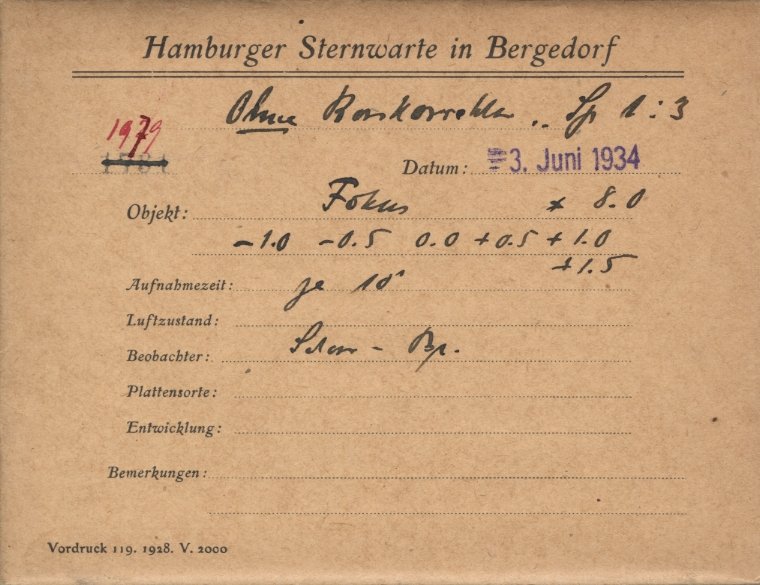 Hamburger Sternwarte in Bergedorf
Ohne .. Sp 1:3
1979
Datum: 3. Juni 1934
Objekt: Fokus * 8.0
-1.0 -0.5 0.0 +0.5 +1.0
+1.5
Aufnahmezeit: je 10s
Luftzustand:
Beobachter:
Plattensorte:
Entwicklung:
Bemerkungen:
Vordruck 119. 1928. V. 2000